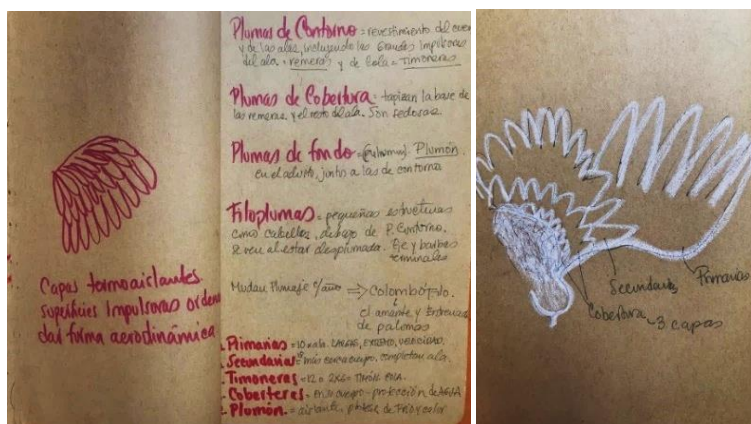 Capas termoaislantes
Superficies Impulsoras
dar forma aerodinámica
Plumas de Contorno = revestimiento del
y de las alas, incluyendo las Grandes Impulsoras
del ala = remeras y de Cola = Timoneras
Plumas de Cobertura = tapizan la base de
las remeras y el resto del ala. Son sedosas
Plumas de fondo = Plumón.
en el adulto, junto a las de contorno
Filoplumas = pequeñas estructuras
como cabellos, debajo de P. Contorno.
Se ven al estar desplumada. Eje y barbas
terminales
Mudan Plumaje c/año ⇒ Colombófilo.
el amante y Entrenador
de palomas
Primarias = 10 x ala. LARGAS, VELOCIDAD.
Secundarias = más cerca cuerpo, completan ala.
Timoneras = 12 o 2x6 = TIMÓN COLA.
Coberteras = en cuerpo - protección de AGUA
Plumón. = aislante, de Frío y calor
Primarias
Secundarias
Cobertura ~ 3 capas